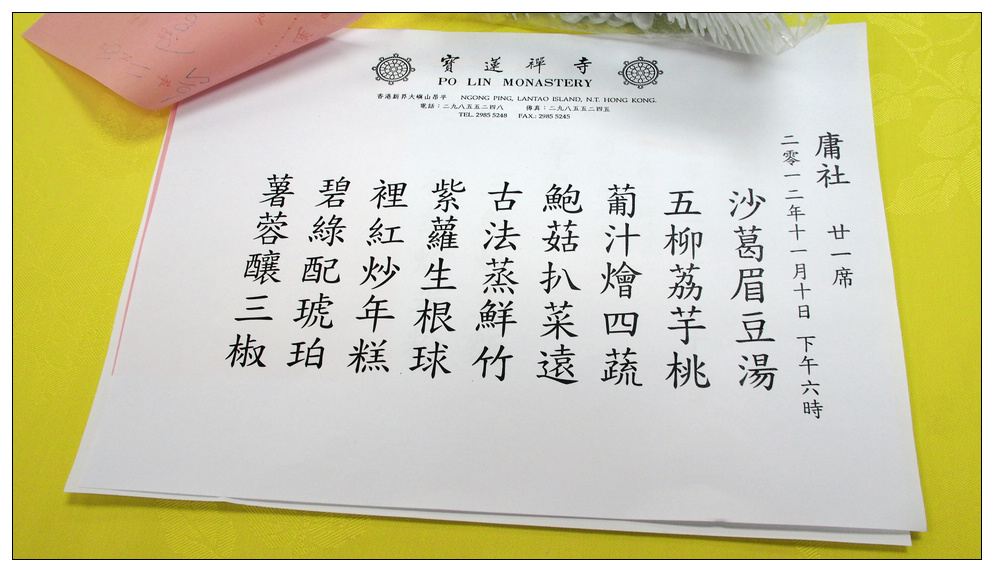 寶蓮禪寺
PO LIN MONASTERY
香港新界大嶼山昂平 NGONG PING, LANTAO ISLAND, N.T. HONG KONG.
電話：二九八五五二四八 傳真：二九八五五二四五
TEL. 2985 5248 FAX.: 2985 5245
庸社 廿一席
二零一二年十一月十日 下午六時
沙葛眉豆湯
五柳荔芋桃
葡汁燴四蔬
鮑菇扒菜遠
古法蒸鮮竹
紫蘿生根球
裡紅炒年糕
碧綠配琥珀
薯蓉釀三椒